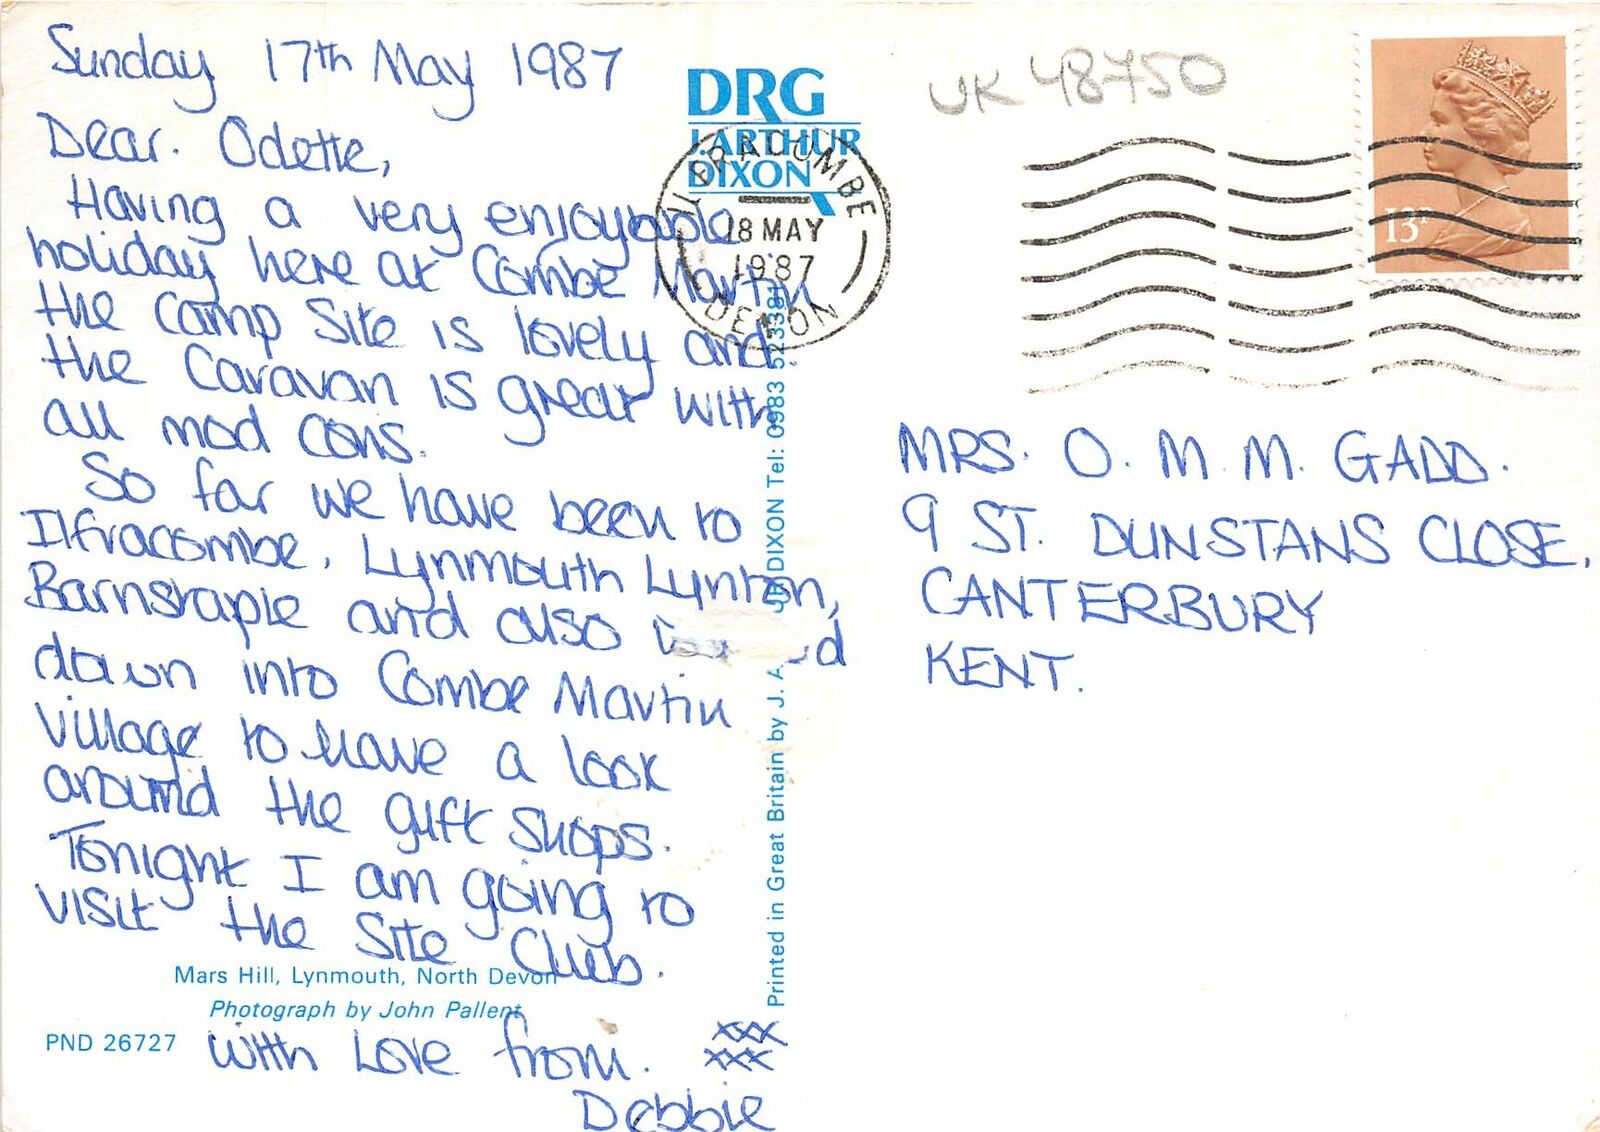 Sunday 17th May 1987
Dear. Odette,
Having a very enjoyable
holiday here at Combe Martin
the Camp Site is lovely and
the Caravan is great with
all mod cons.
So far we have been to
Ilfracombe, Lynmouth Lynton,
Barnstaple and also
down into Combe Martin
Village to have a look
around the gift shops.
Tonight I am going to
visit the Site Club.
with Love from.
Debbie
xxx
xxx
Mars Hill, Lynmouth, North Devon
Photograph by John Pallent
PND 26727
DRG
J.ARTHUR
DIXON
Printed in Great Britain by J. A. DIXON Tel: 0983 523381
ILFRACOMBE
18 MAY
1987
DEVON
UK 48750
13P
MRS. O. M. M. GADD.
9 ST. DUNSTANS CLOSE,
CANTERBURY
KENT.